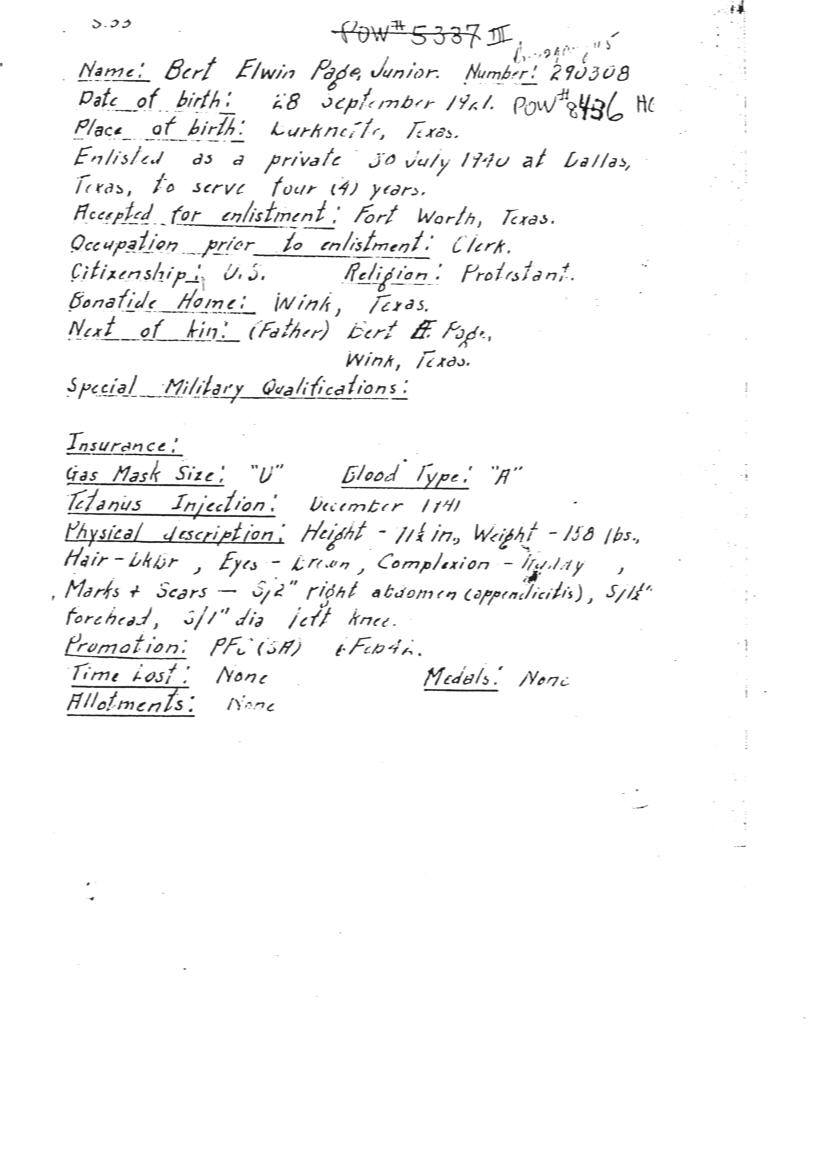 POW# 5337 III
Name: Bert Elwin Page, Junior. Number: 290308
Date of birth: 28 September 1921. POW# 8436 HC
Place of birth: Texas.
Enlisted as a private 30 July 1940 at Dallas,
Texas, to serve four (4) years.
Accepted for enlistment: Fort Worth, Texas.
Occupation prior to enlistment: Clerk.
Citizenship: U.S. Religion: Protestant.
Bonafide Home: Wink, Texas.
Next of kin: (Father) Bert E. Page,
Wink, Texas.
Special Military Qualifications:
Insurance:
Gas Mask Size: "U" Blood Type: "A"
Tetanus Injection: December 1941
Physical description: Height - 71½ in., Weight - 158 lbs.,
Hair - bkbr, Eyes - brown, Complexion - Ruddy,
Marks + Scars - S/2" right abdomen (appendicitis), S/1½"
forehead, S/1" dia left knee.
Promotion: PFC (SA) Feb 42.
Time Lost: None Medals: None
Allotments: None